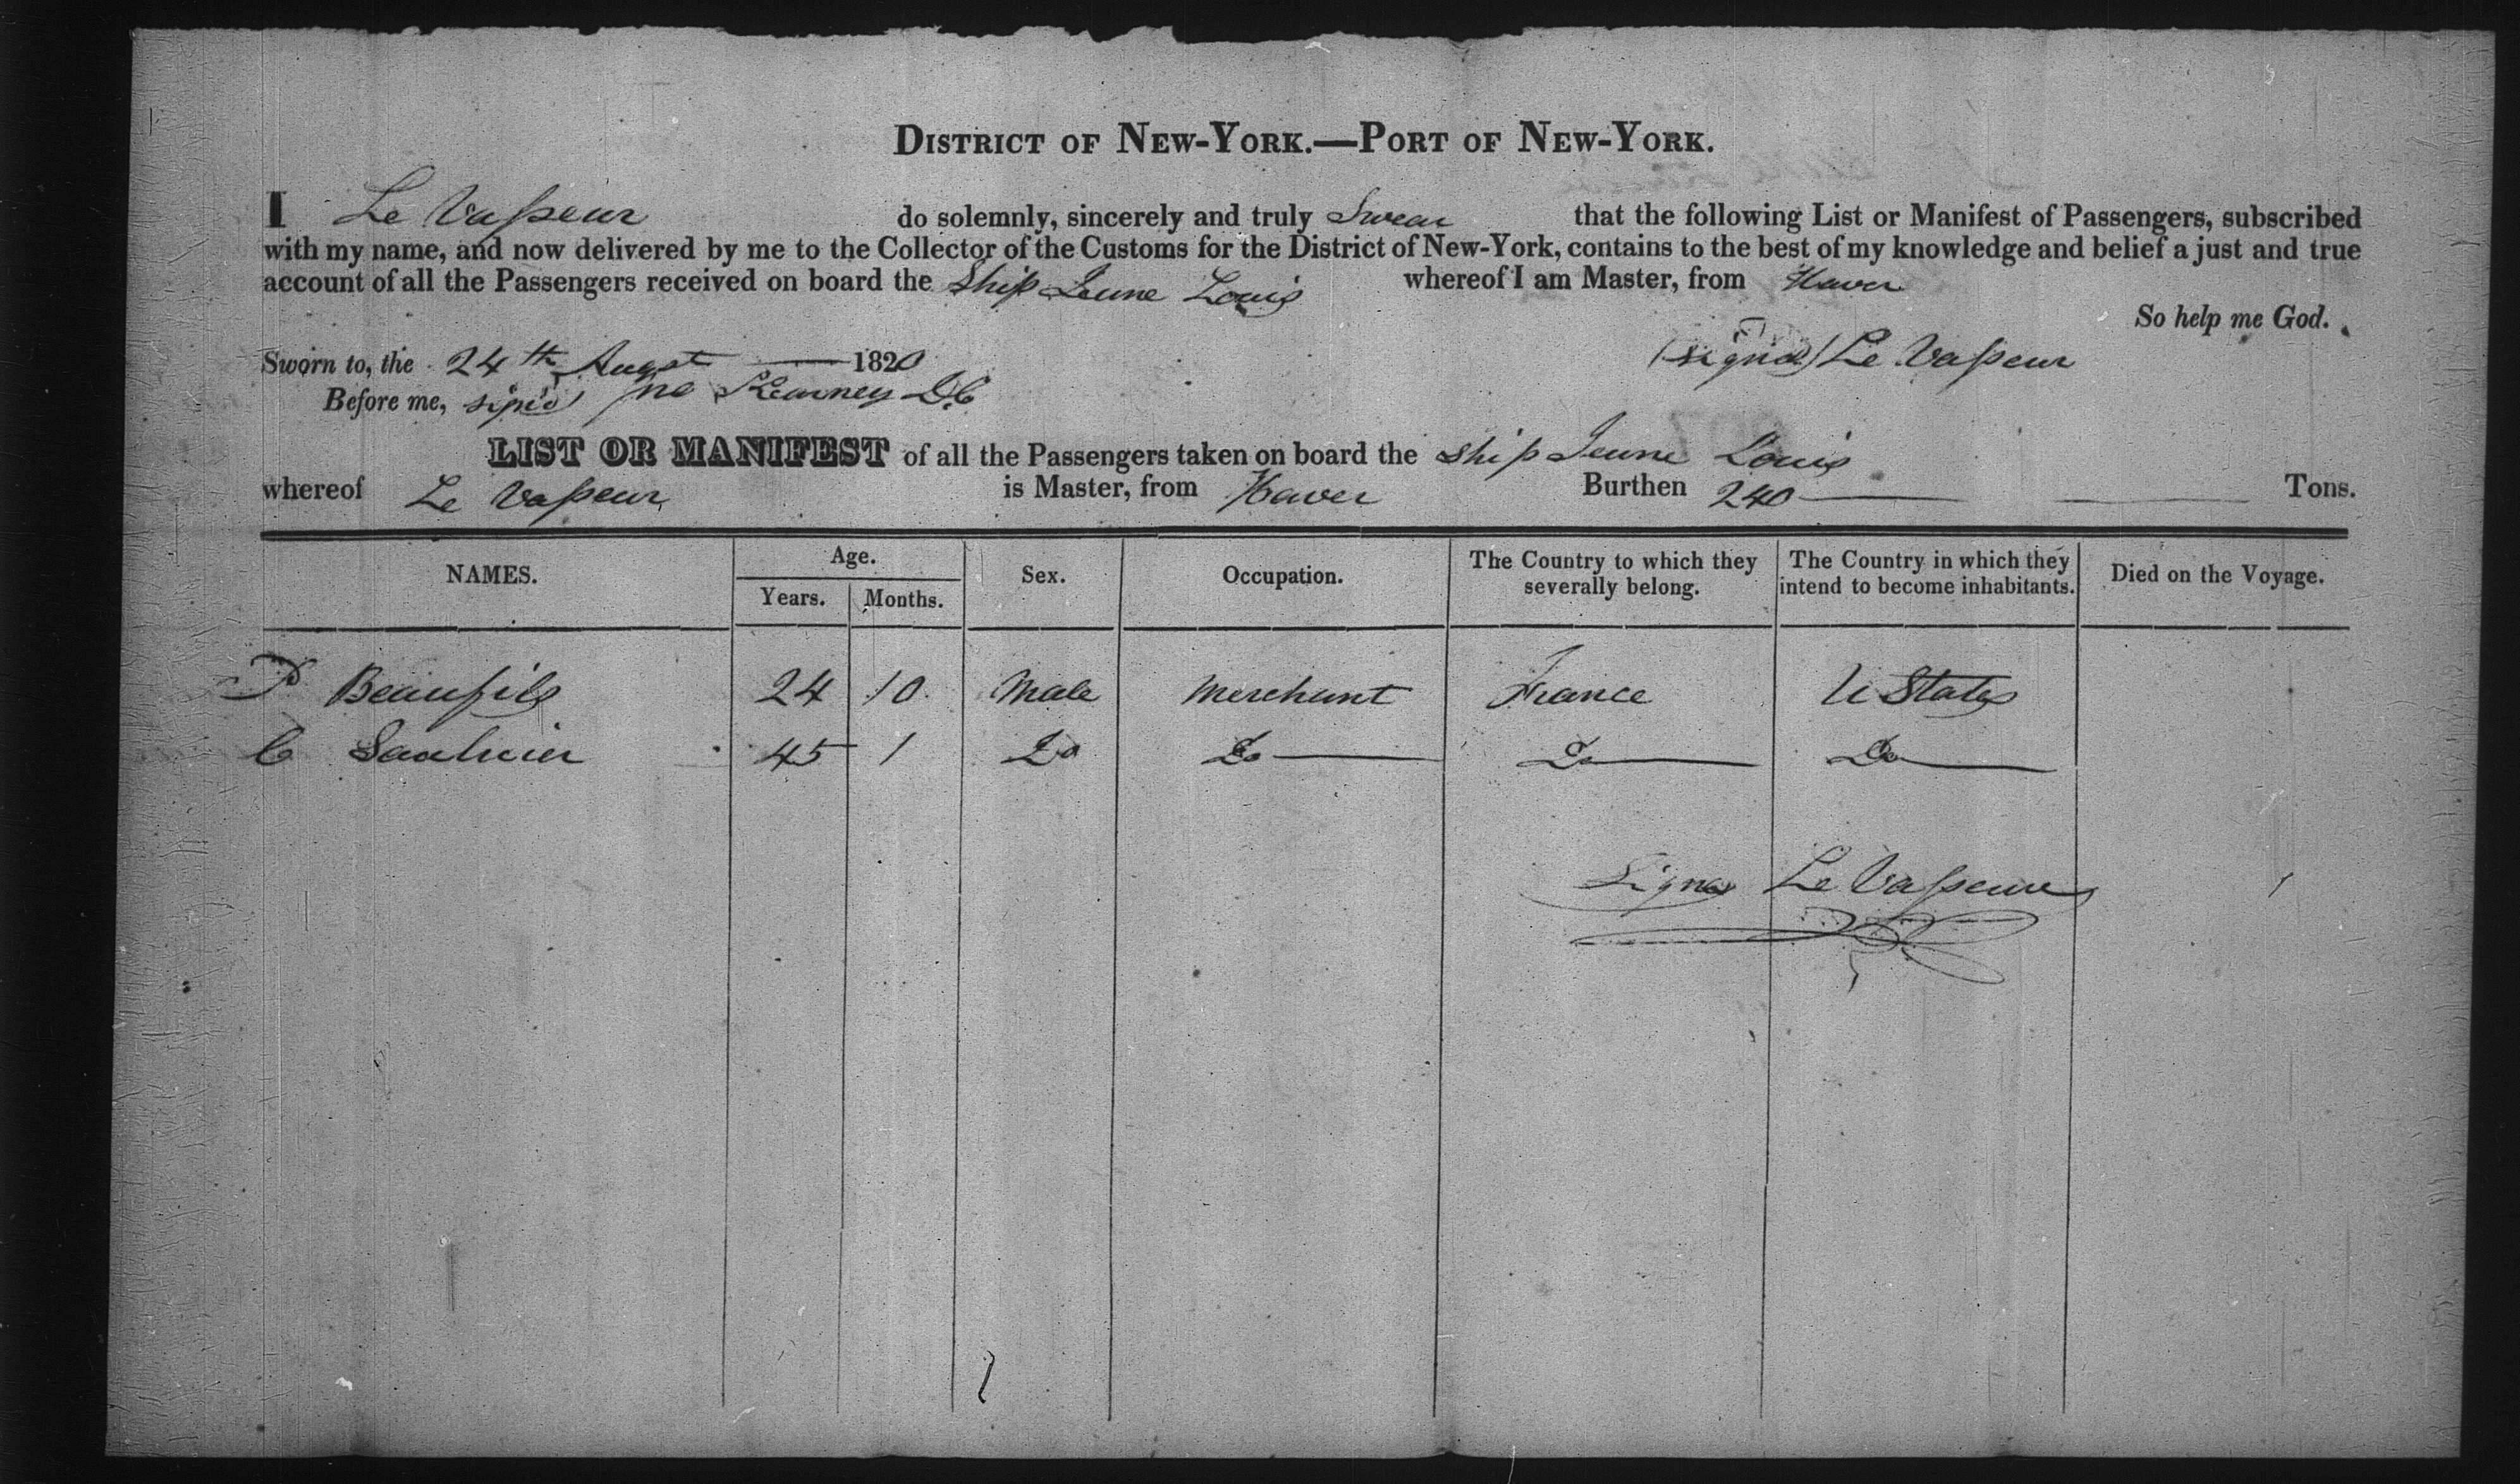 DISTRICT OF NEW-YORK.—PORT OF NEW-YORK.
I Le Vasseur do solemnly, sincerely and truly Swear that the following List or Manifest of Passengers, subscribed
with my name, and now delivered by me to the Collector of the Customs for the District of New-York, contains to the best of my knowledge and belief a just and true
account of all the Passengers received on board the Ship Jeune Louis whereof I am Master, from Haver
So help me God.
Sworn to, the 24th Augst 1820 (signed) Le Vasseur
Before me, signed Jno Kearney DC
LIST OR MANIFEST of all the Passengers taken on board the Ship Jeune Louis
whereof Le Vasseur is Master, from Haver Burthen 240 Tons.
NAMES. Age. Sex. Occupation. The Country to which they severally belong. The Country in which they intend to become inhabitants. Died on the Voyage.
Years. Months.
P Beaufils 24 10 Male Merchant France U States
C Saulnier 45 1 Do Do Do Do
Signed Le Vasseur